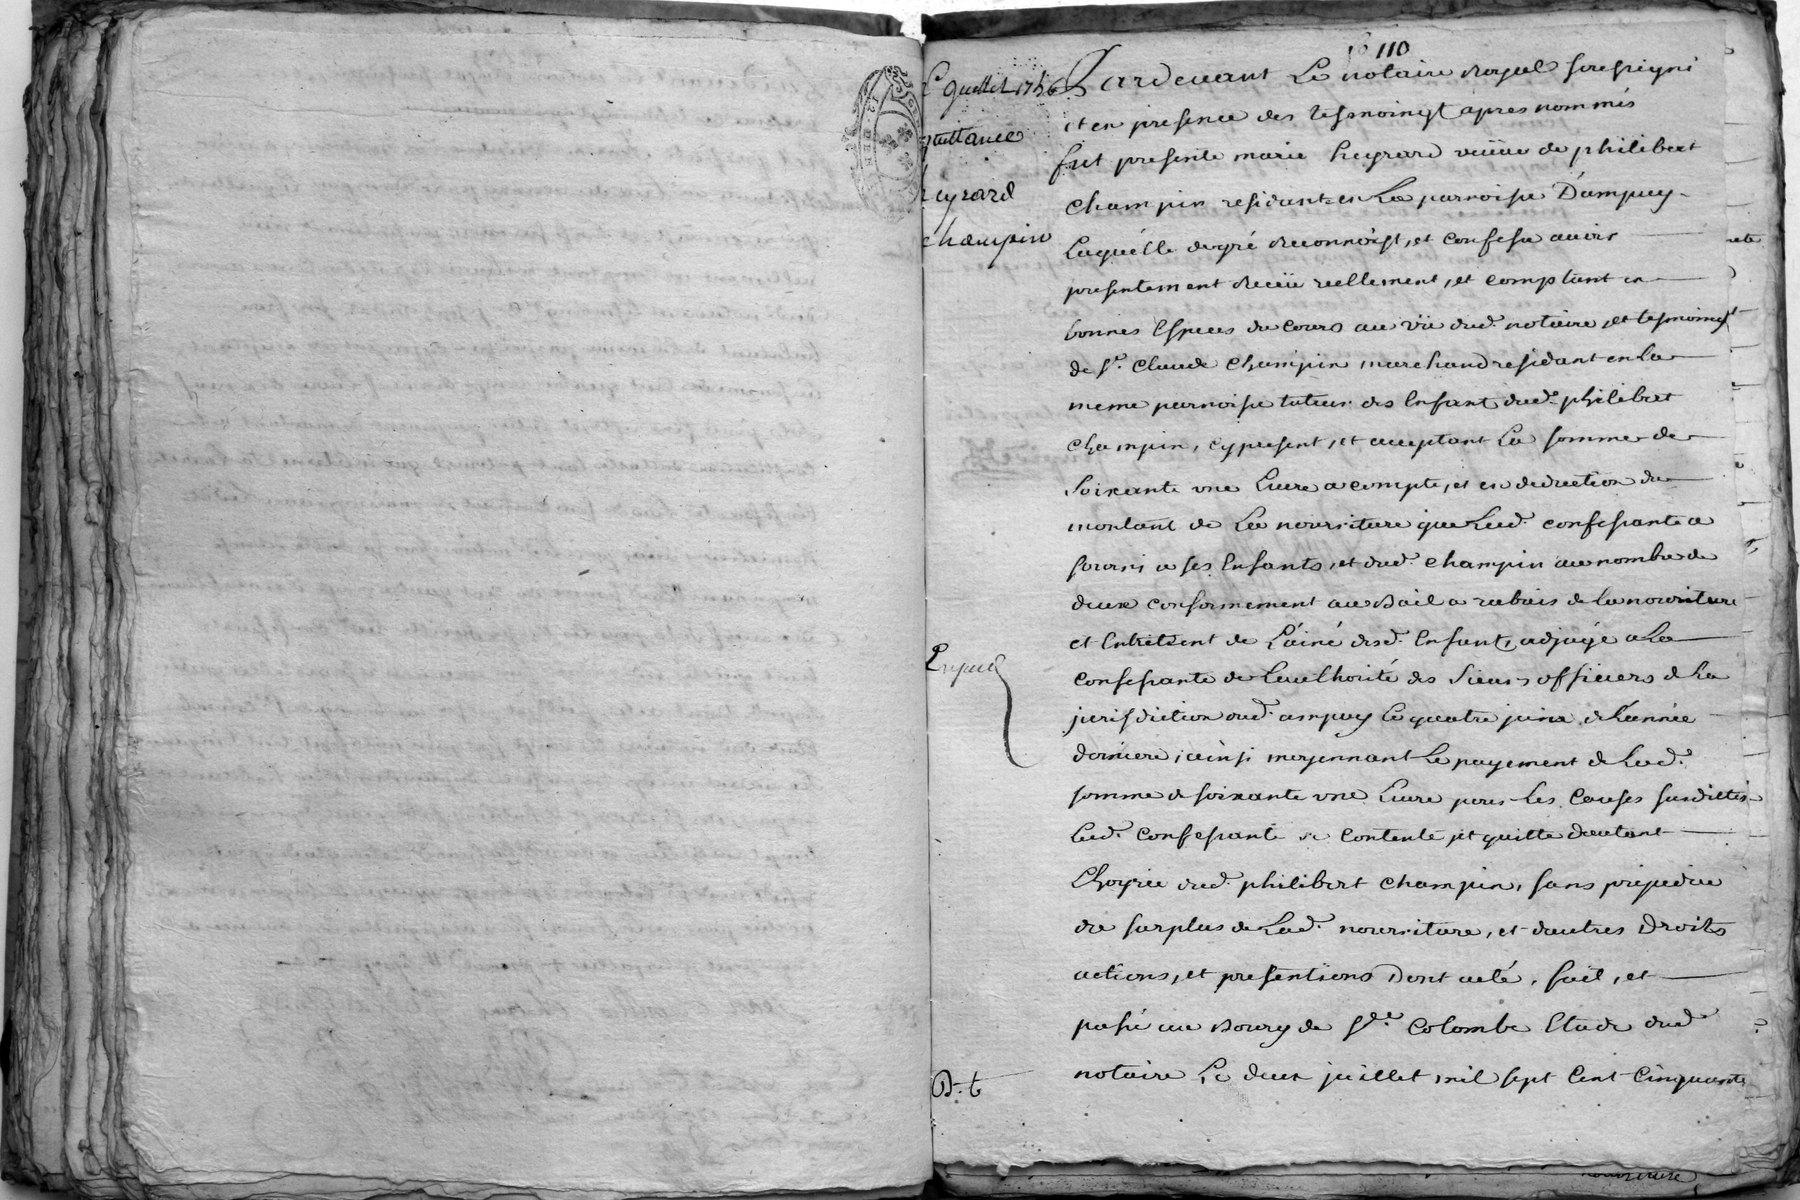 110
2 Juillet 1756
quittance
heyrard
champin
Expedié
D. t
Pardevant Le notaire Royal soussigné
et en presence des tesmoingt apres nommés
fut presente marie heyrard veüve de philibert
champin residante en La parroisse D'ampuy
Laquelle degré reconnoist, et confesse avoir
presentement receu reellement, et comptant en
bonnes Especes du cours au vü dud. notaire, et tesmoingt
de Sr. Claude Champin marchand residant en la
meme parroisse tuteur des Enfant dud. philibert
champin, cy present, et acceptant La somme de
soixante une Livre a compte, et en deduction du
montant de La nourriture que Lad. confessante a
fourni a ses Enfants, et dud. champin au nombre de
deux conformement au Bail a rabais de la nourriture
et Entretient de L'áiné desd. Enfant, adjugé a La
confessante de L'authorité des Sieurs officiers de La
jurisdiction dud. ampuy le quatre juin de L'année
derniere, ainsi moyennant Le payement de Lad.
somme de soixante une Livre pour les Causes susdittes
Lad. confessante se contente, et quitte d'autant
L'hoyrie dud. philibert champin, sans prejudice
du surplus de Lad. nourriture, et d'autres Droits
actions, et pretentions Dont acte, fait, et
passé au Bourg de Ste. Colombe Etude dud.
notaire Le deux juillet mil sept Cent Cinquante